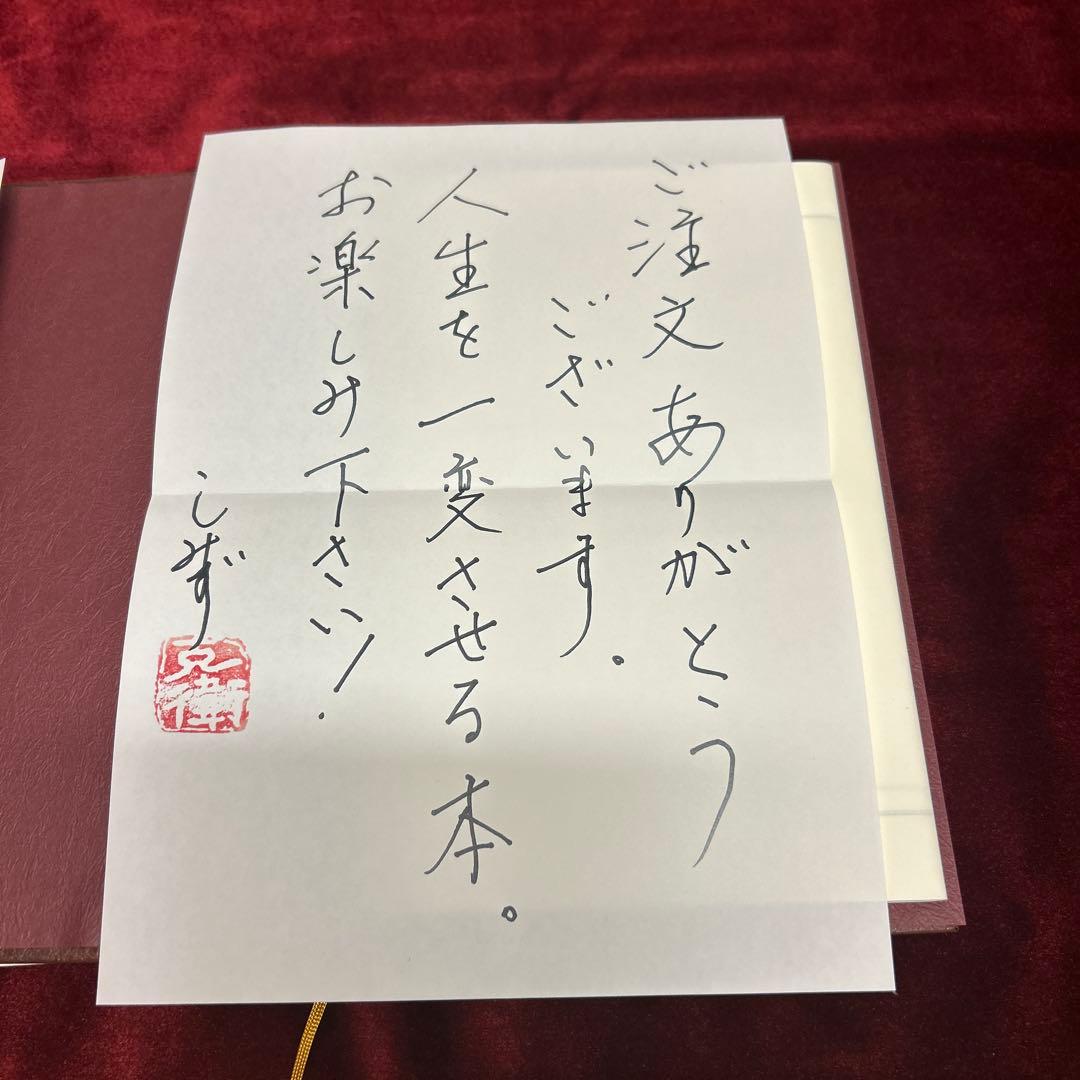 ご注文ありがとう
ございます。
人生を一変させる本。
お楽しみ下さい!
しみず
克衛